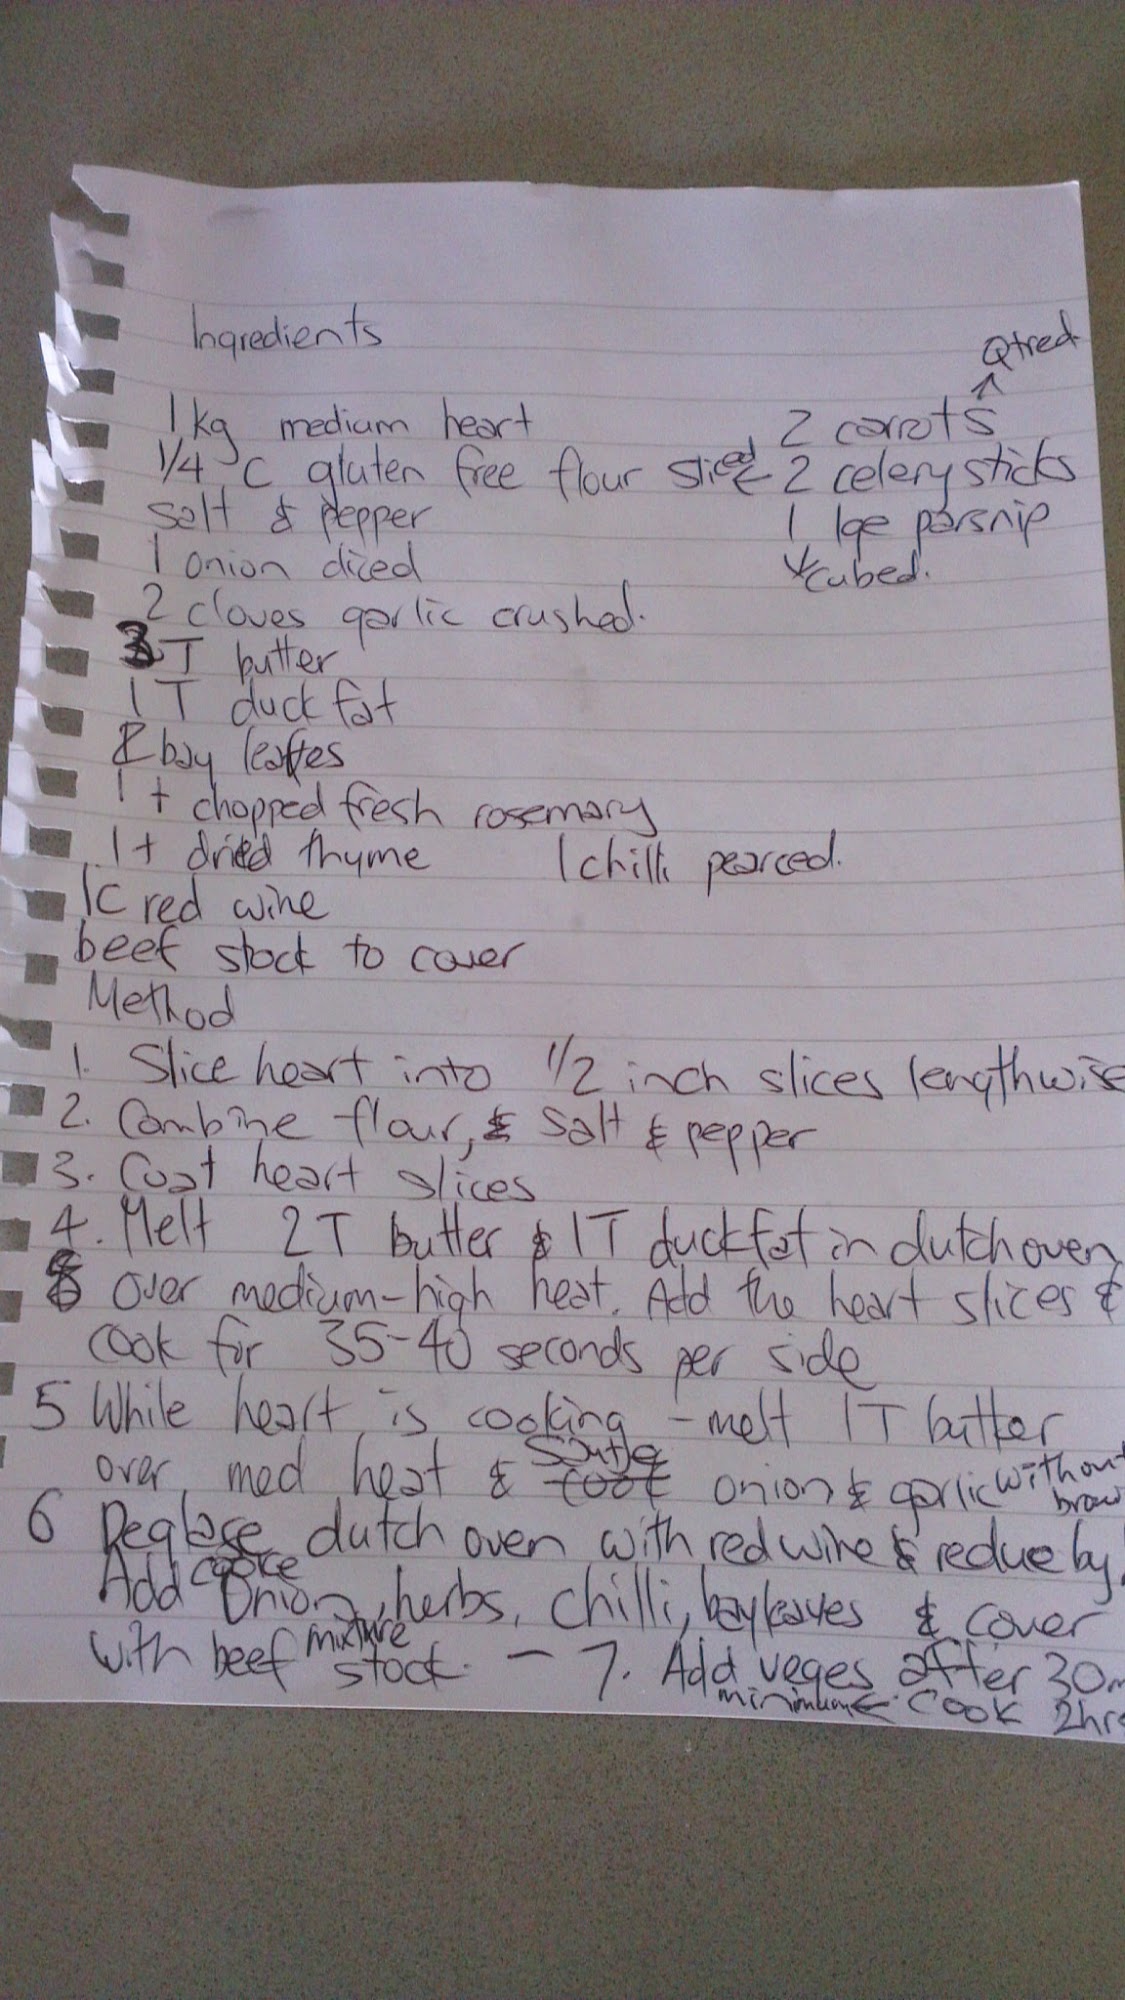 Ingredients
Qtred
1 kg medium heart
2 carrots
1/4 C gluten free flour
sliced 2 celery sticks
salt & pepper
1 lge parsnip
1 onion diced
cubed.
2 cloves garlic crushed.
3 T butter
1 T duck fat
2 bay leaves
1 t chopped fresh rosemary
1 t dried thyme 1 chilli pearced.
1C red wine
beef stock to cover
Method
1. Slice heart into 1/2 inch slices lengthwise
2. Combine flour, & salt & pepper
3. Coat heart slices
4. Melt 2T butter & 1T duck fat in dutch oven
over medium-high heat. Add the heart slices &
cook for 35-40 seconds per side
5 While heart is cooking - melt 1T butter
over med heat & onion & garlic without
6 Deglase dutch oven with red wine & redue by
Add onion, herbs, chilli, bayleaves & cover
with beef mixture stock. - 7. Add veges after 30m
minimum ← cook 2hrs